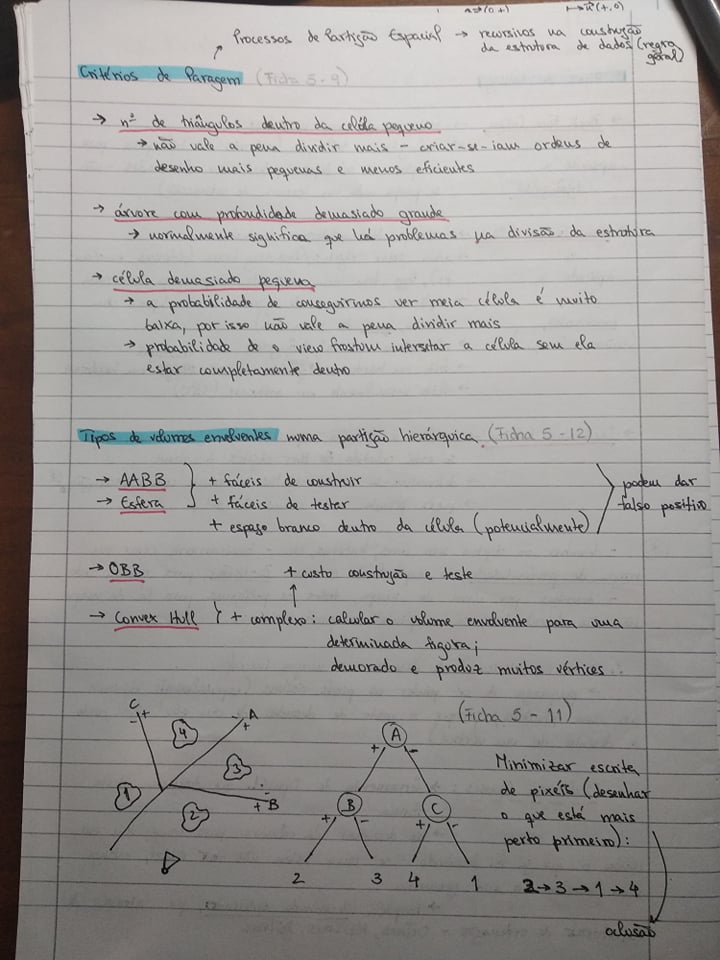 Processos de Partição Espacial → recursivos na construção
da estrutura de dados (regra
geral)
Critérios de Paragem (Ficha 5-9)
→ nº de triângulos dentro da célula pequeno
→ não vale a pena dividir mais - criar-se-iam ordens de
desenho mais pequenas e menos eficientes
→ árvore com profundidade demasiado grande
→ normalmente significa que há problemas na divisão da estrutura
→ célula demasiado pequena
→ a probabilidade de conseguirmos ver meia célula é muito
baixa, por isso não vale a pena dividir mais
→ probabilidade de o view frostum intersetar a célula sem ela
estar completamente dentro
Tipos de volumes envolventes numa partição hierárquica (Ficha 5-12)
→ AABB } + fáceis de construir
→ Esfera + fáceis de testar
+ espaço branco dentro da célula (potencialmente)
podem dar
falso positivo
→ OBB + custo construção e teste
→ Convex Hull } + complexo: calcular o volume envolvente para uma
determinada figura;
demorado e produz muitos vértices.
(Ficha 5 - 11)
C
- +
4
- A
+
3
1
2
-
+ B
A
+ -
B C
+ - + -
2 3 4 1
Minimizar escrita
de pixéis (desenhar
o que está mais
perto primeiro):
2 → 3 → 1 → 4
oclusão